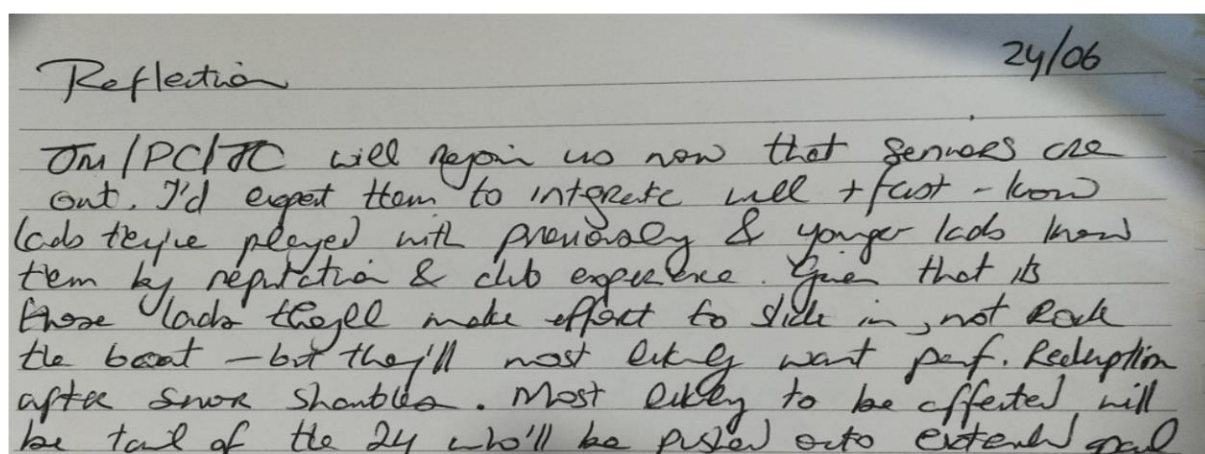 Reflection
24/06
JM/PC/JC will rejoin us now that seniors are
out. I'd expect them to integrate well + fast - know
lads they've played with previously & younger lads know
them by reputation & club experience. Given that its
those lads they'll make effort to slide in, not rock
the boat - but they'll most likely want perf. Redemption
after senior shambles. Most likely to be affected will
be tail of the 24 who'll be pushed onto extended